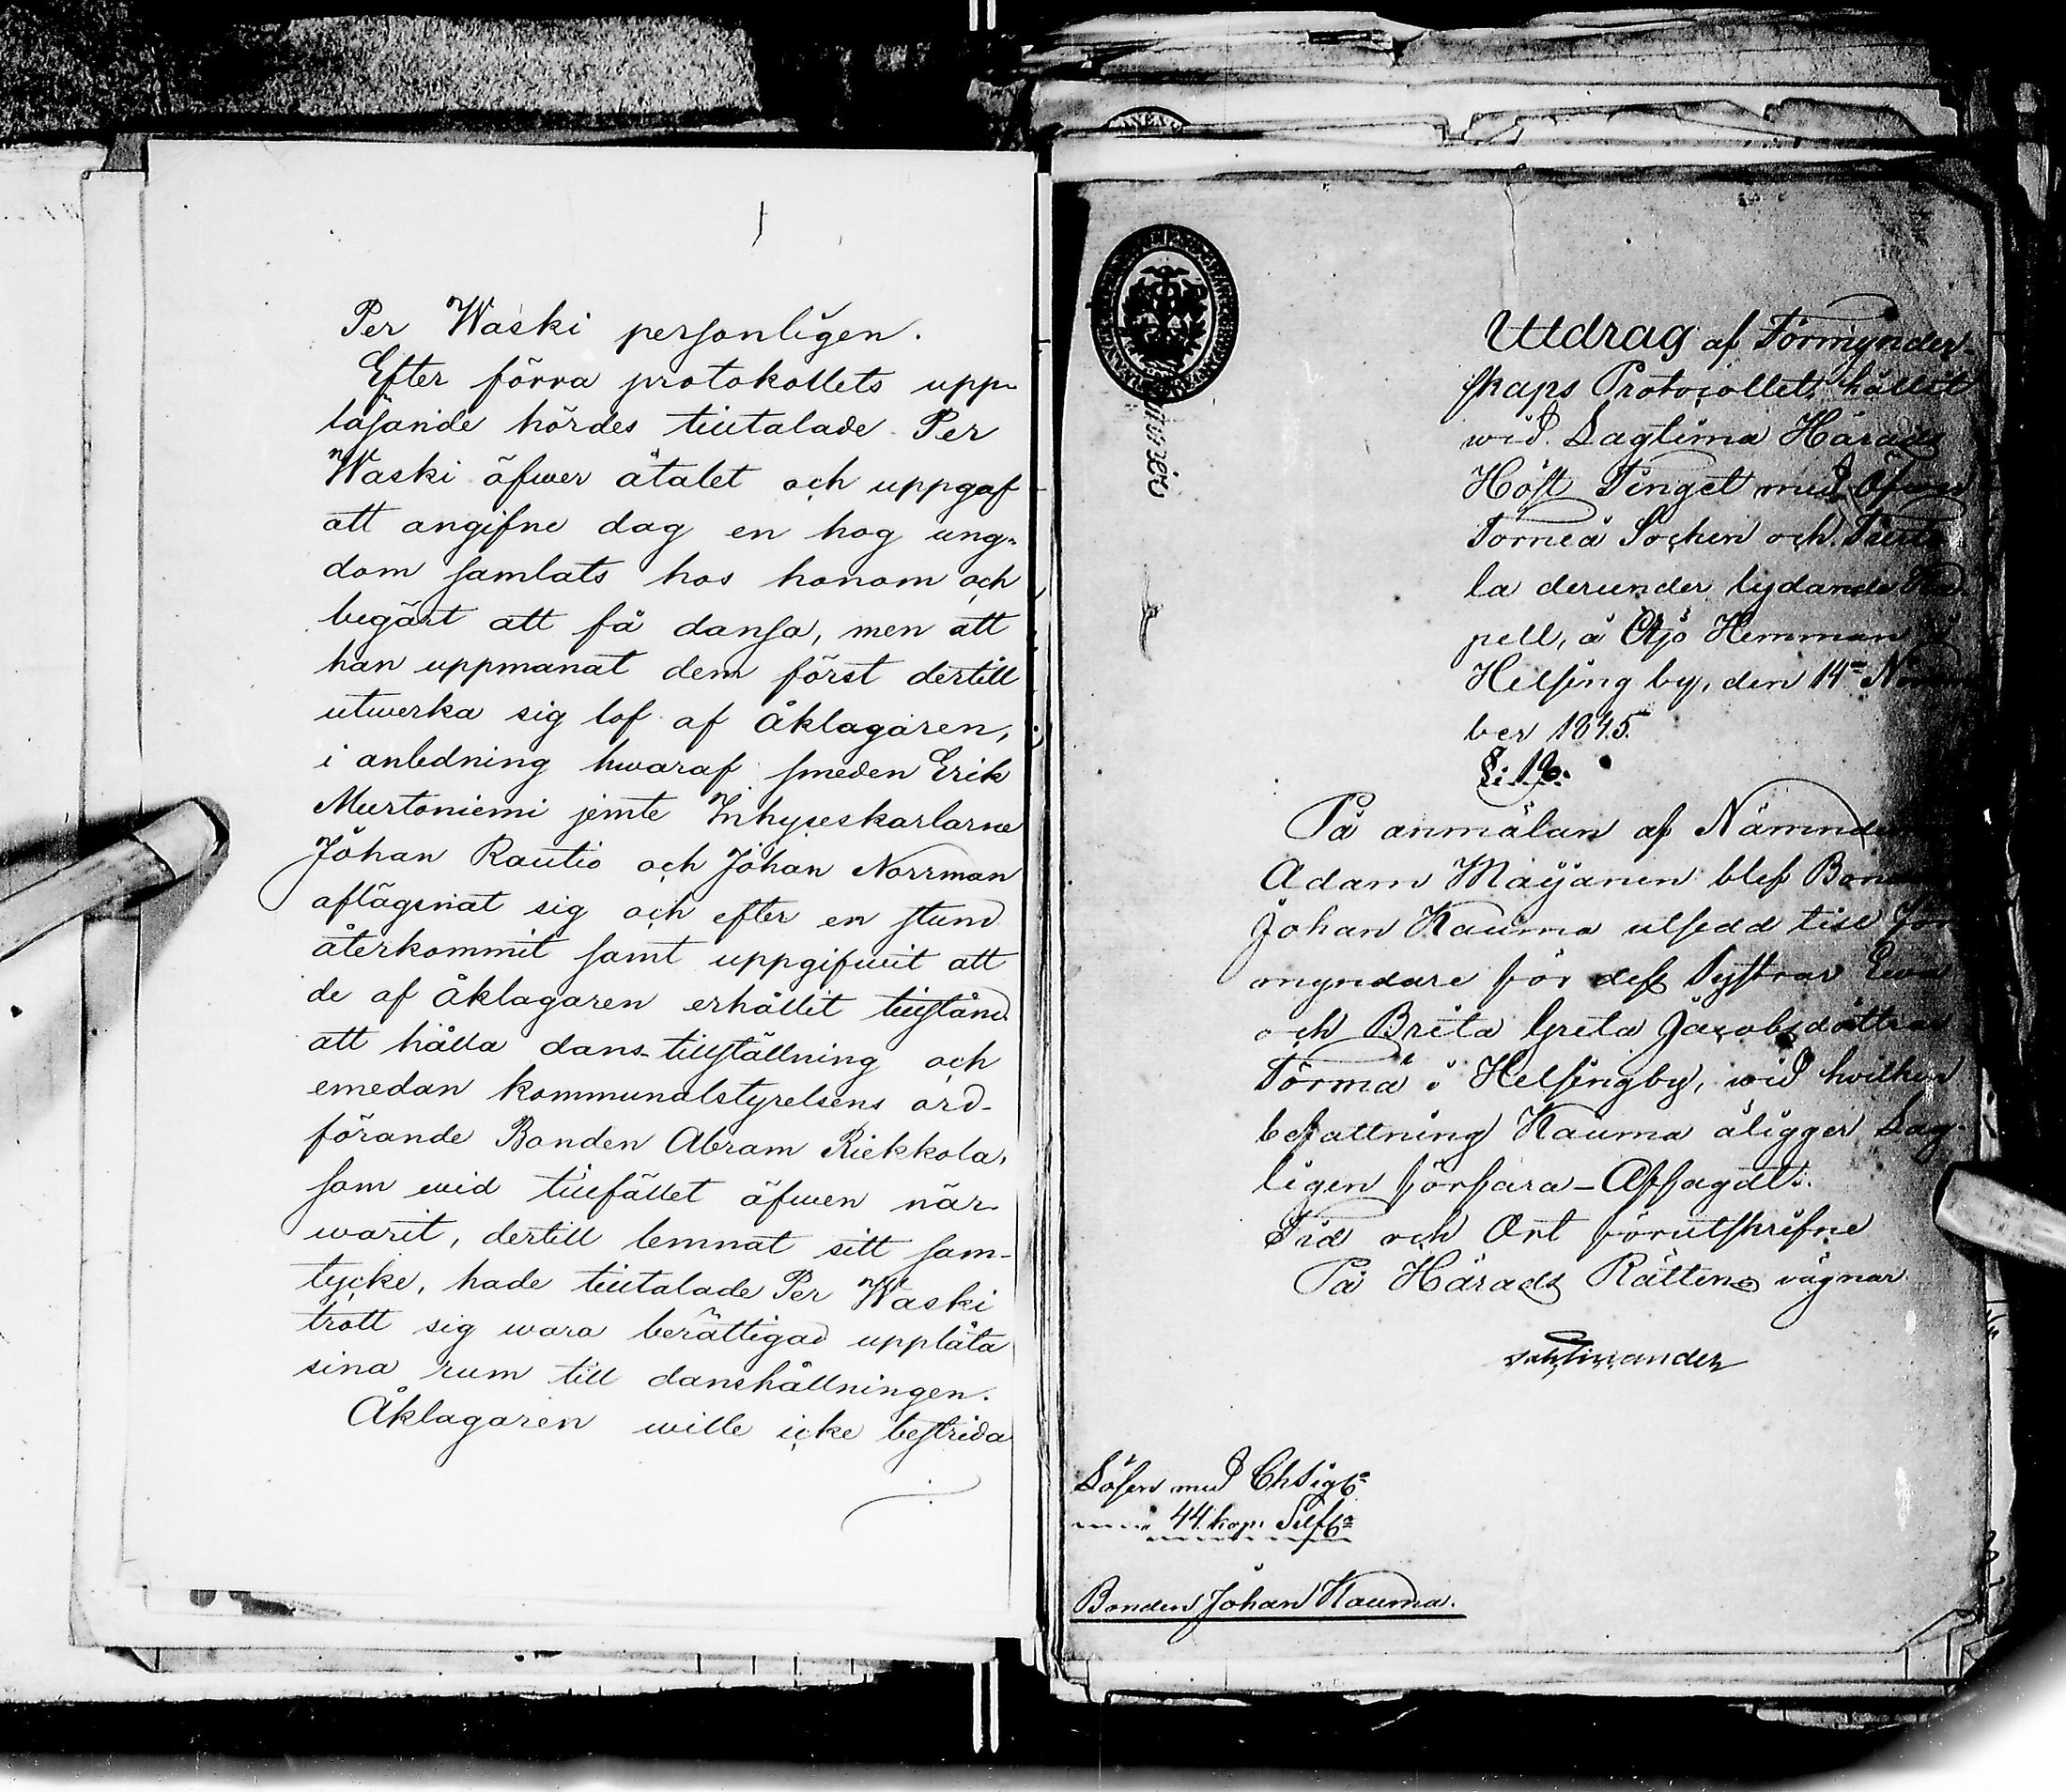 Per Waski personligen.
Efter förra protokollets upp-
läsande hördes tilltalade Per
Waski öfwer åtalet och uppgaf
att angifne dag en hog ung-
dom samlats hos honom och
begärt att få dansa, men att
han uppmanat dem först dertill
utwerka sig lof af åklagaren,
i anledning hwaraf smeden Erik
Murtoniemi jemte Inhyseskarlarne
Johan Rautio och Johan Norrman
aflägsnat sig och efter en stund
återkommit samt uppgifwit att
de af åklagaren erhållit tillstånd
att hålla dans-tillställning och
emedan kommunalstyrelsens ord-
förande Bonden Abram Riekkola,
som wid tillfället äfwen när-
warit, dertill lemnat sitt sam-
tycke, hade tilltalade Per Waski
trott sig wara berättigad upplåta
sina rum till danshållningen.
Åklagaren wille icke bestrida
Utdrag af Förmynder-
skaps Protocollet, hållit
wid Lagtima Härads
Höst Tinget med Öfwer
Torneå Sochen och Turto
la derunder lydande Ka-
pell, å Öjö Hemman i
Helsing by, den 14de Novem
ber 1845.
På anmälan af Nämndem
Adam Mäyänen blef Bonden
Johan Kauma utsedd till För
myndare för dess Systrar Ewa
och Brita Greta Jacobsdöttrar
Törmä i Helsingby, wid hvilken
befattning Kauma åligger Lag-
ligen förfara – Afsagdt.
Tid och Ort förutskrifne
På Härads Rättens vägnar
Lösen med Ch Sigt
44 kop. Silfr
Bonden Johan Kauma.